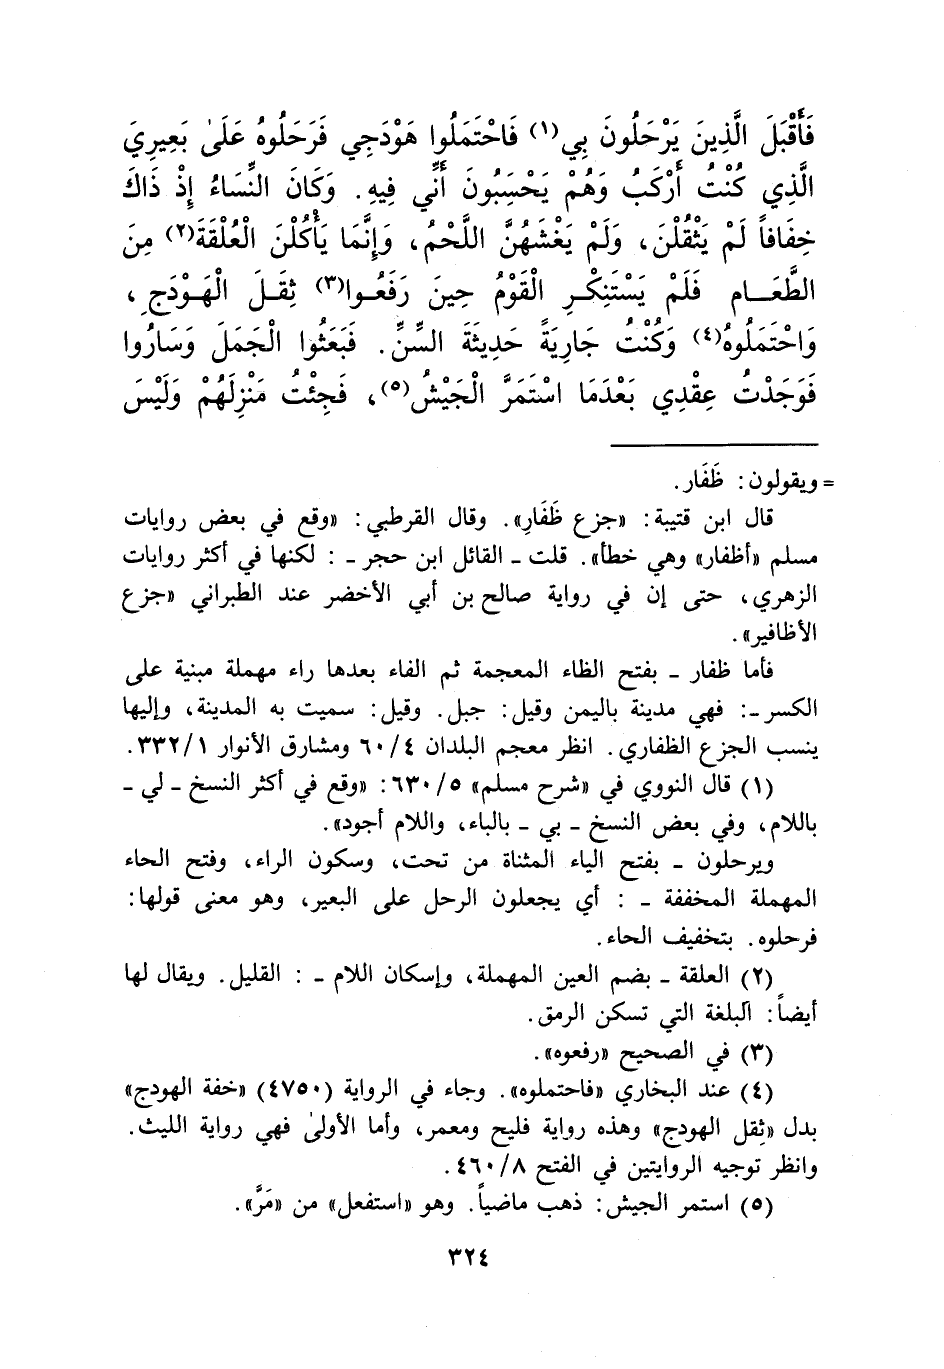 فَأَقْبَلَ الَّذِينَ يَرْحَلُونَ بِي(١) فَاحْتَمَلُوا هَوْدَجِي فَرَحَلُوهُ عَلَىٰ بَعِيرِيَ
الَّذِي كُنْتُ أَرْكَبُ وَهُمْ يَحْسِبُونَ أَنِّي فِيهِ. وَكَانَ النِّسَاءُ إِذْ ذَاكَ
خِفَافاً لَمْ يَثْقُلْنَ، وَلَمْ يَغْشَهُنَّ اللَّحْمُ، وَإِنَّمَا يَأْكُلْنَ الْعُلْقَةَ(٢) مِنَ
الطَّعَـــامِ فَلَمْ يَسْتَنْكِــرِ الْقَوْمُ حِينَ رَفَعُــوا(٣) ثِقَـلَ الْهَـوْدَجِ،
وَاحْتَمَلُوهُ(٤) وَكُنْتُ جَارِيَةً حَدِيثَةَ السِّنِّ. فَبَعَثُوا الْجَمَلَ وَسَارُوا
فَوَجَدْتُ عِقْدِي بَعْدَمَا اسْتَمَرَّ الْجَيْشُ(٥)، فَجِئْتُ مَنْزِلَهُمْ وَلَيْسَ
= ويقولون: ظَفَار.
قال ابن قتيبة: «جزع ظَفَارِ». وقال القرطبي: «وقع في بعض روايات
مسلم «أظفار» وهي خطأ». قلت ـ القائل ابن حجر ـ : لكنها في أكثر روايات
الزهري، حتى إن في رواية صالح بن أبي الأخضر عند الطبراني «جزع
الأظافير».
فأما ظفار ـ بفتح الظاء المعجمة ثم الفاء بعدها راء مهملة مبنية على
الكسر ـ: فهي مدينة باليمن وقيل: جبل. وقيل: سميت به المدينة، وإليها
ينسب الجزع الظفاري. انظر معجم البلدان ٦٠/٤ ومشارق الأنوار ٣٣٢/١.
(١) قال النووي في «شرح مسلم» ٦٣٠/٥: «وقع في أكثر النسخ ـ لي ـ
باللام، وفي بعض النسخ ـ بي ـ بالباء، واللام أجود».
ويرحلون ـ بفتح الياء المثناة من تحت، وسكون الراء، وفتح الحاء
المهملة المخففة ـ : أي يجعلون الرحل على البعير، وهو معنى قولها:
فرحلوه. بتخفيف الحاء.
(٢) العلقة ـ بضم العين المهملة، وإسكان اللام ـ : القليل. ويقال لها
أيضاً: البلغة التي تسكن الرمق.
(٣) في الصحيح «رفعوه».
(٤) عند البخاري «فاحتملوه». وجاء في الرواية (٤٧٥٠) «خفة الهودج»
بدل «ثِقل الهودج» وهذه رواية فليح ومعمر، وأما الأولىٰ فهي رواية الليث.
وانظر توجيه الروايتين في الفتح ٤٦٠/٨.
(٥) استمر الجيش: ذهب ماضياً. وهو «استفعل» من «مَرَّ».
٣٢٤